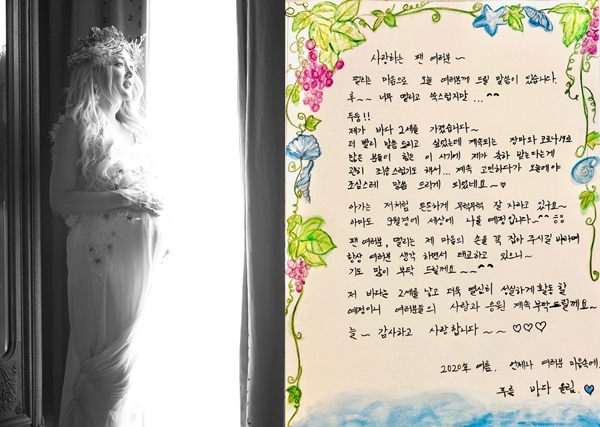 사랑하는 팬 여러분~
떨리는 마음으로 오늘 여러분께 드릴 말씀이 있습니다.
후~~ 너무 떨리고 쑥스럽지만...^^
두둥!!
제가 바다 2세를 가졌습니다~
더 빨리 말씀 드리고 싶었는데 계속되는 장마와 코로나19로
많은 분들이 힘든 이 시기에 제가 축하 받는다는게
괜히 조심스럽기도 해서... 계속 고민하다가 오늘에야
조심스레 말씀 드리게 되었네요~♡
아가는 저처럼 튼튼하게 무럭무럭 잘 자라고 있구요~
아마도 9월경에 세상에 나올 예정입니다~^^ ㅎㅎ
팬 여러분, 떨리는 제 마음의 손을 꼭 잡아 주시길 바라며
항상 여러분 생각 하면서 태교하고 있으니~
기도 많이 부탁 드릴께요~~^^
저 바다는 2세를 낳고 더욱 열심히 성실하게 활동 할
예정이니 여러분들의 사랑과 응원 계속 부탁드릴께요~
늘~ 감사하고 사랑합니다~~♡♡♡
2020年 여름. 언제나 여러분 마음속에.
푸를 바다 올림.♡